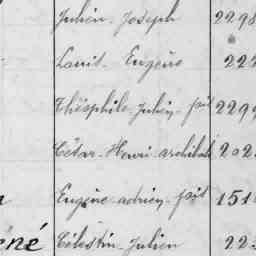 Julien Joseph 2298
Louis Eugène 222
Théophile Julien pil 2299
César Henri archibald 202
Eugène adrien pil 151
éné Célestin Julien 22